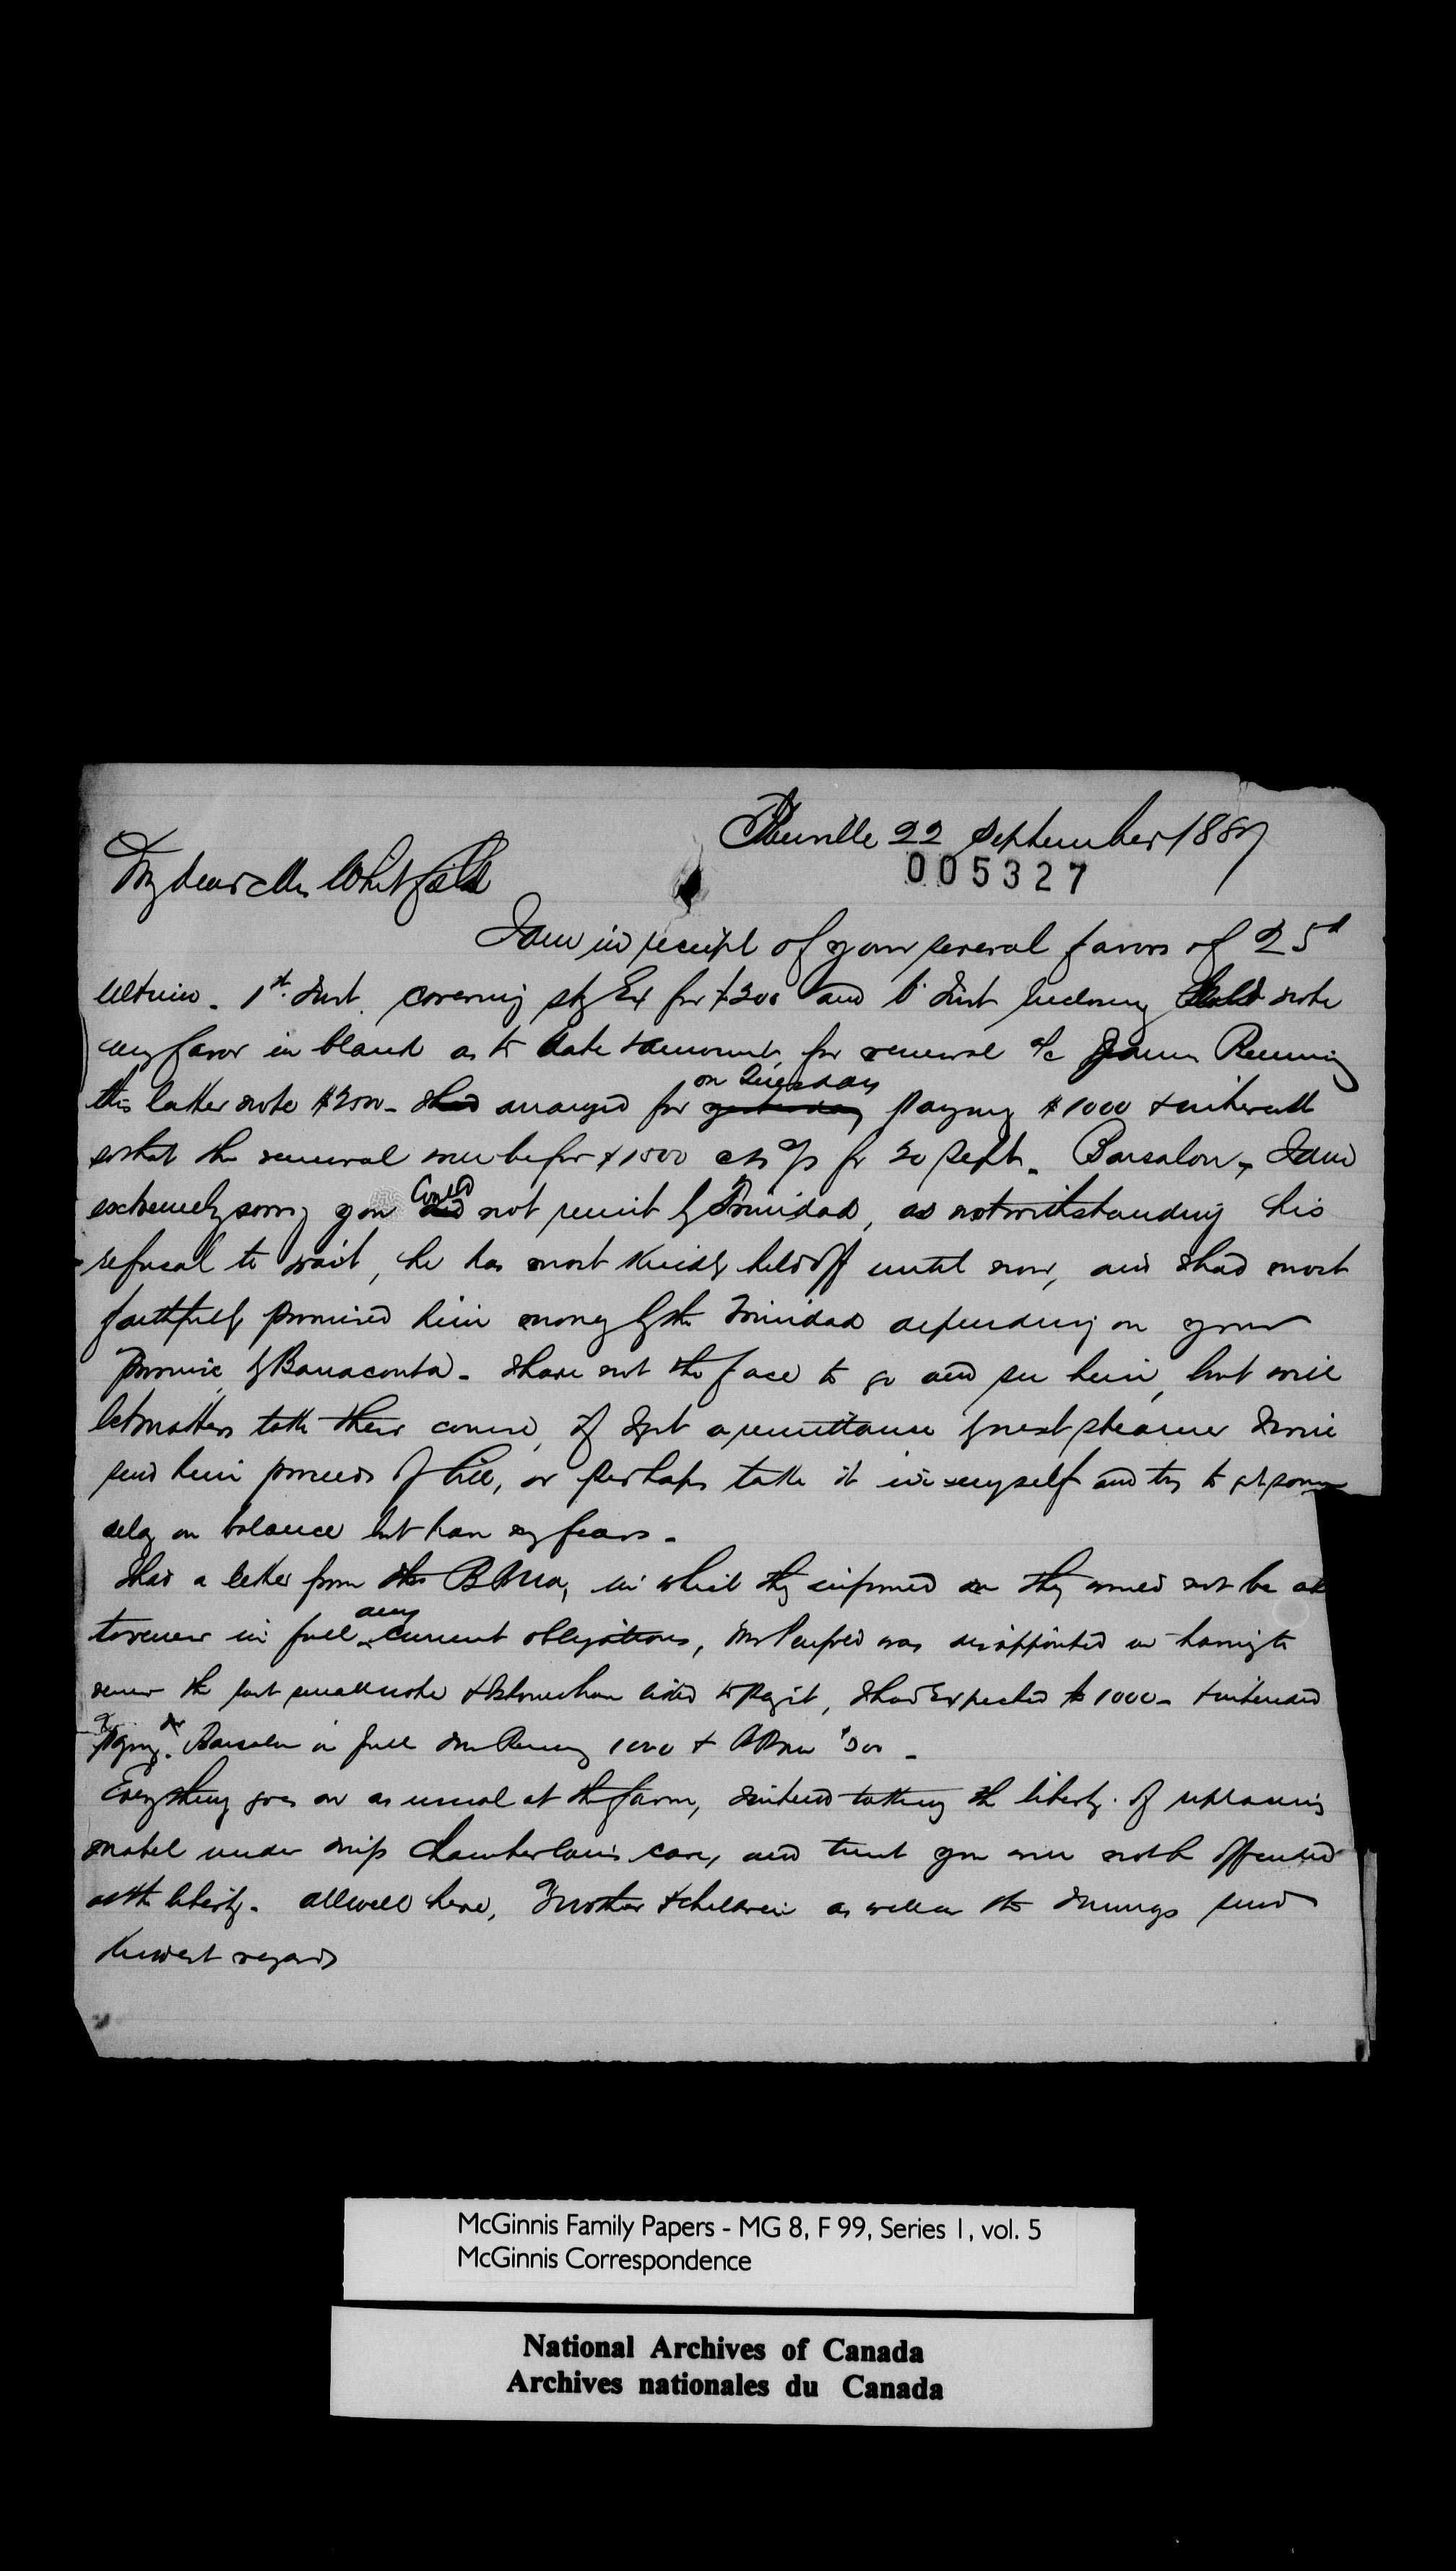 22 September 1887
005327
My dear Mr Whitfield
I am in receipt of your several favors of 25th
ultimo. 1st Inst. covering stg Ex for £300 and Inst inclosing note
my favor in blank as to date & amount for renewal a/c James
this latter note $2500 - I had arranged for yesterday on Tuesday paying $1000 & interest
so that the renewal will be for $1500 for 20 Sept. Barsalou, I am
extremely sorry you did could not remit by Trinidad, as notwithstanding his
refusal to wait, he has most kindly held off until now, and I had most
faithfully promised him money by the Trinidad depending on your
promise by Barraconta. I have not the face to go and see him, but will
let matters take their course, if I get a remittance by next steamer I will
send him proceeds of bill, or perhaps take it in myself and try to get some
delay on balance but have my fears.
I had a letter from the BNA, in which they informed me they would not be
to renew in full any current obligations, Mr Penfold was disappointed in having to
renew the last small note & to pay it, I had expected 1000 - & intended
paying Barsalou in full 1000 & 500 -
Everything goes on as usual at the farm, I intend taking the liberty of replacing
Mabel under Miss Chamberlain's care, and trust you will not be offended
at the liberty. All well here, Mother & children as well as the send
kindest regards
McGinnis Family Papers - MG 8, F 99, Series 1, vol. 5
McGinnis Correspondence
National Archives of Canada
Archives nationales du Canada